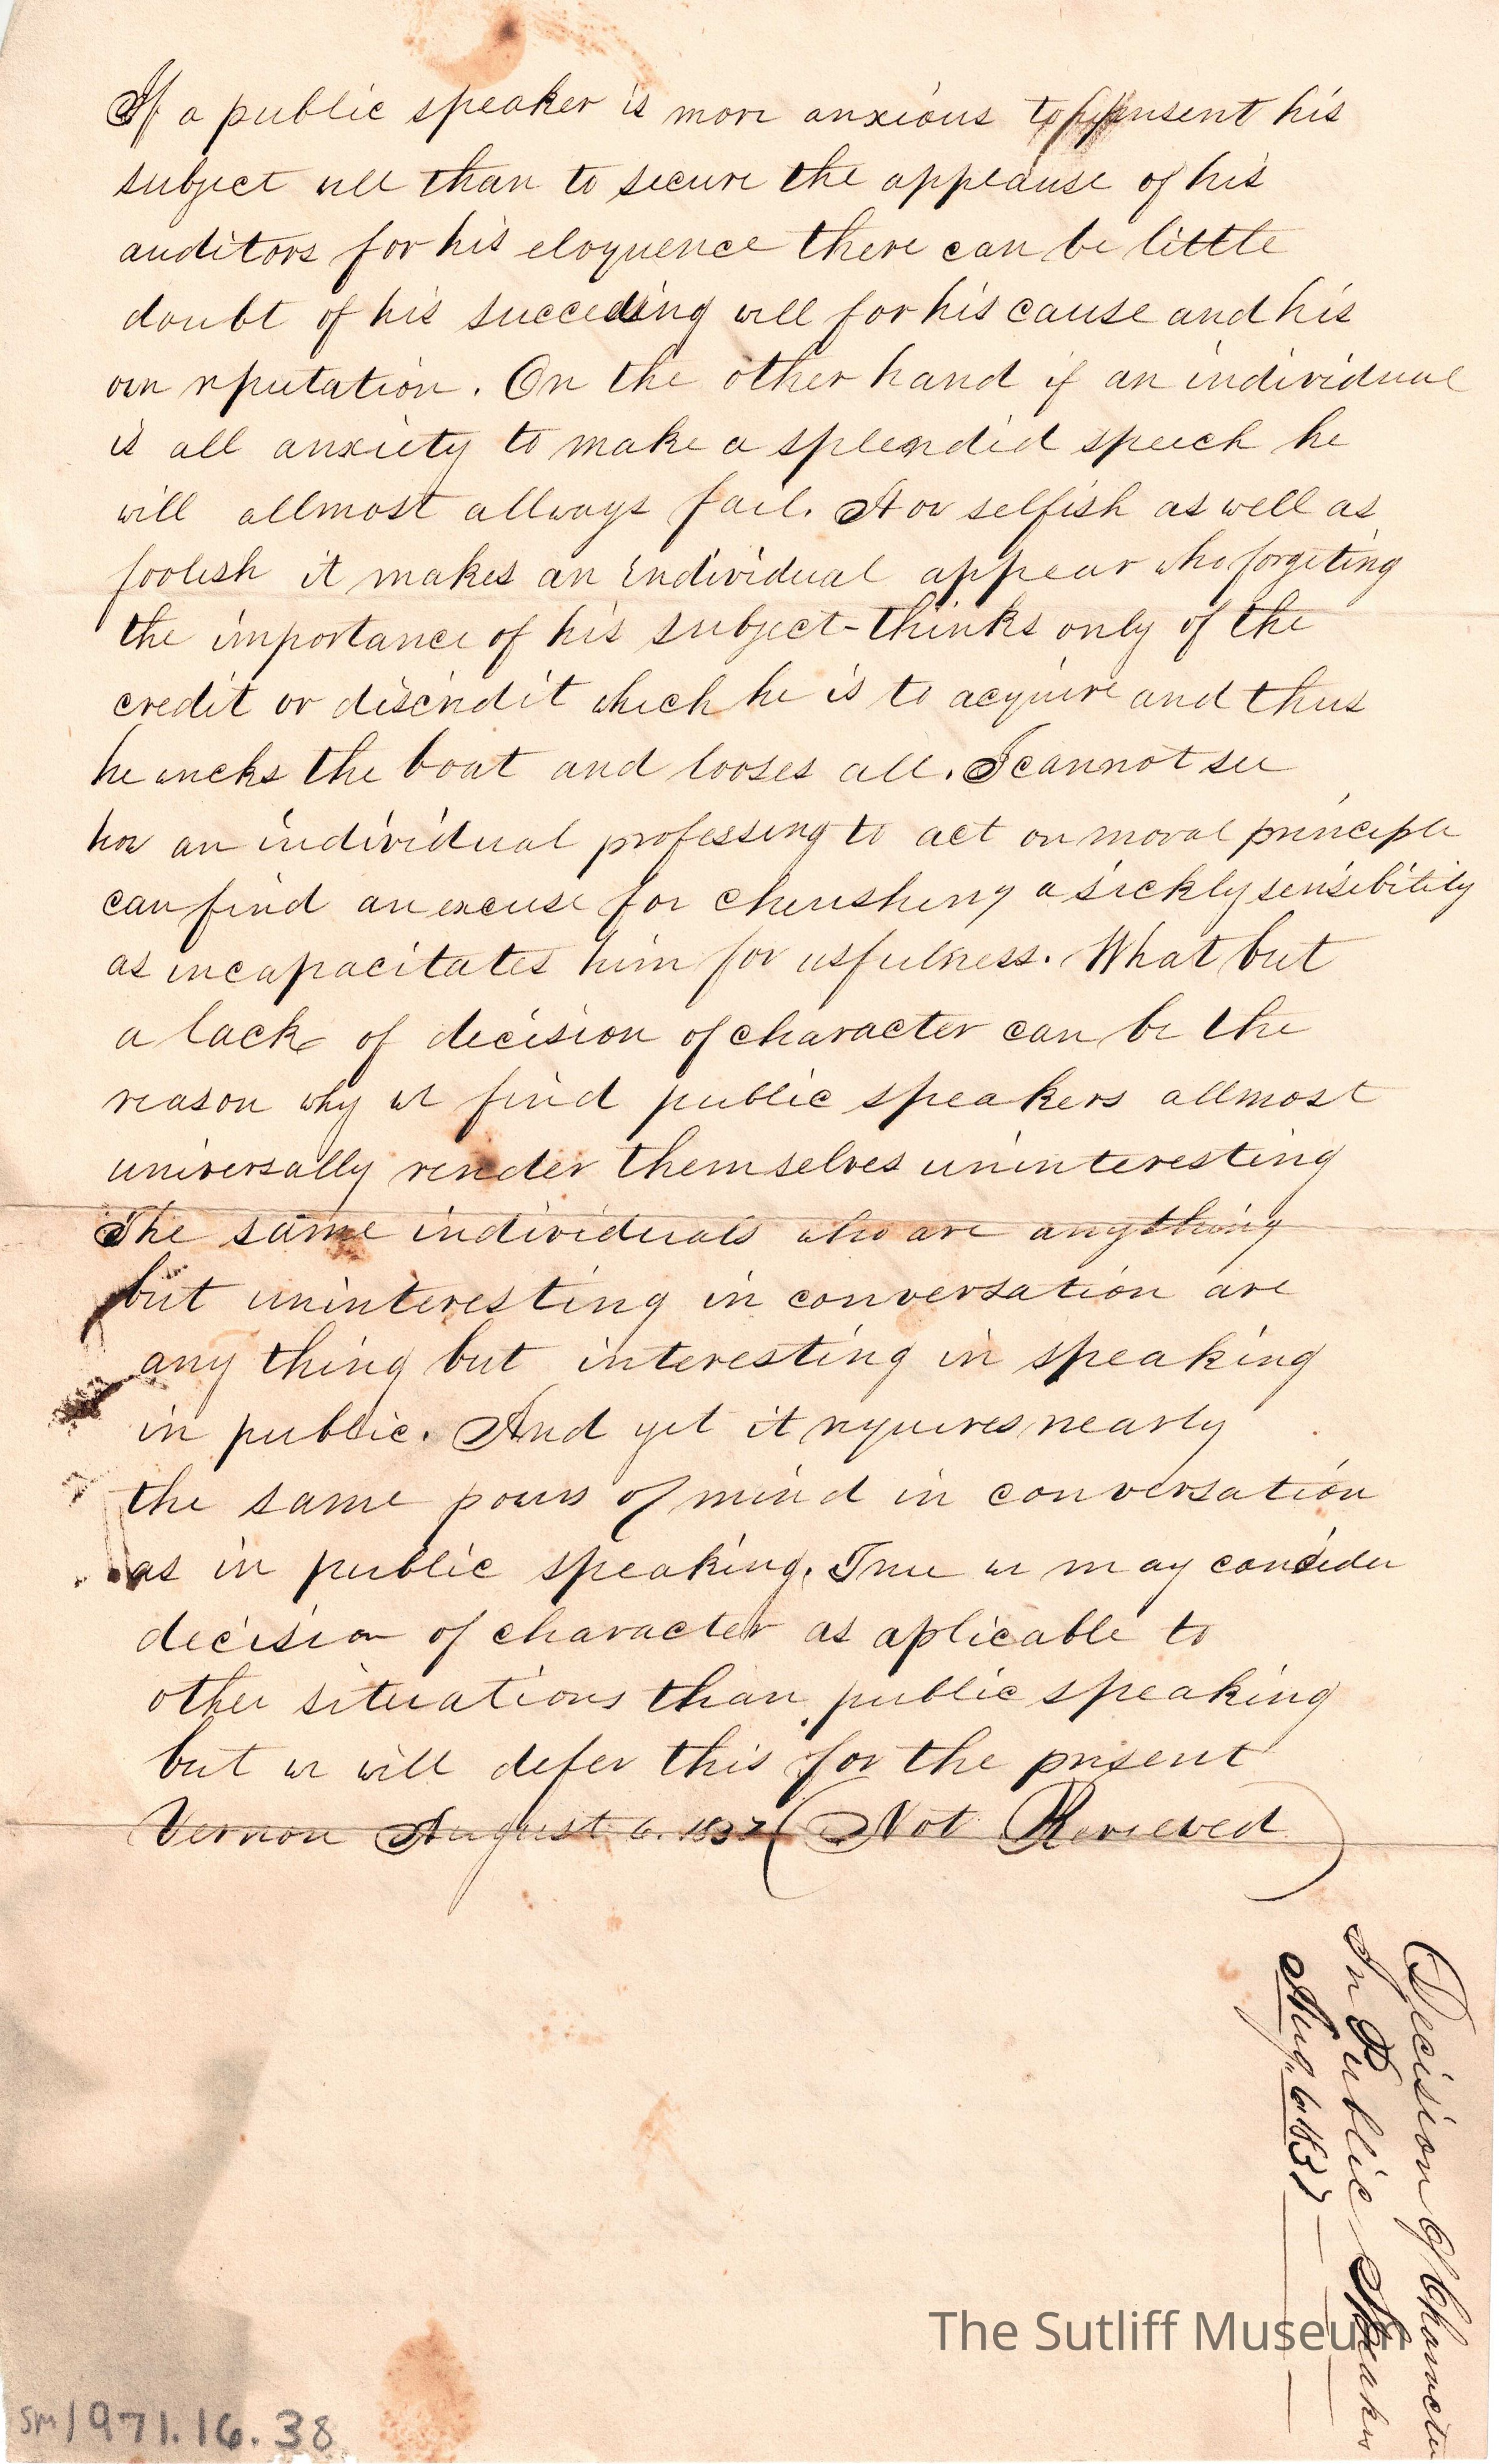 If a public speaker is more anxious to present his
subject well than to secure the applause of his
auditors for his eloquence there can be little
doubt of his succeeding well for his cause and his
own reputation. On the other hand if an individual
is all anxiety to make a splendid speech he
will allmost allways fail. How selfish as well as
foolish it makes an individual appear who forgeting
the importance of his subject-thinks only of the
credit or discredit which he is to acquire and thus
he wrecks the boat and looses all. I cannot see
how an individual professing to act on moral principle
can find an excuse for cherishing a sickly sensibility
as incapacitates him for usfulness. What but
a lack of decision of character can be the
reason why we find public speakers allmost
universally render themselves uninteresting
The same individuals who are anything
but uninteresting in conversation are
any thing but interesting in speaking
in public. And yet it requires nearly
the same powers of mind in conversation
as in public speaking. True we may consider
decision of character as aplicable to
other situations than public speaking
but we will defer this for the present
Vernon August 6. 1837 (Not Revieved)
Decision of Character
In Public Speaker
Aug. 6 1837
The Sutliff Museum
SM1971.16.38